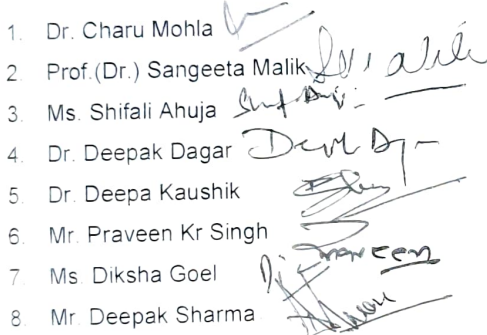 1. Dr. Charu Mohla
2. Prof.(Dr.) Sangeeta Malik
3. Ms. Shifali Ahuja
4. Dr. Deepak Dagar
5. Dr. Deepa Kaushik
6. Mr. Praveen Kr Singh PRAVEEN
7. Ms. Diksha Goel
8. Mr. Deepak Sharma